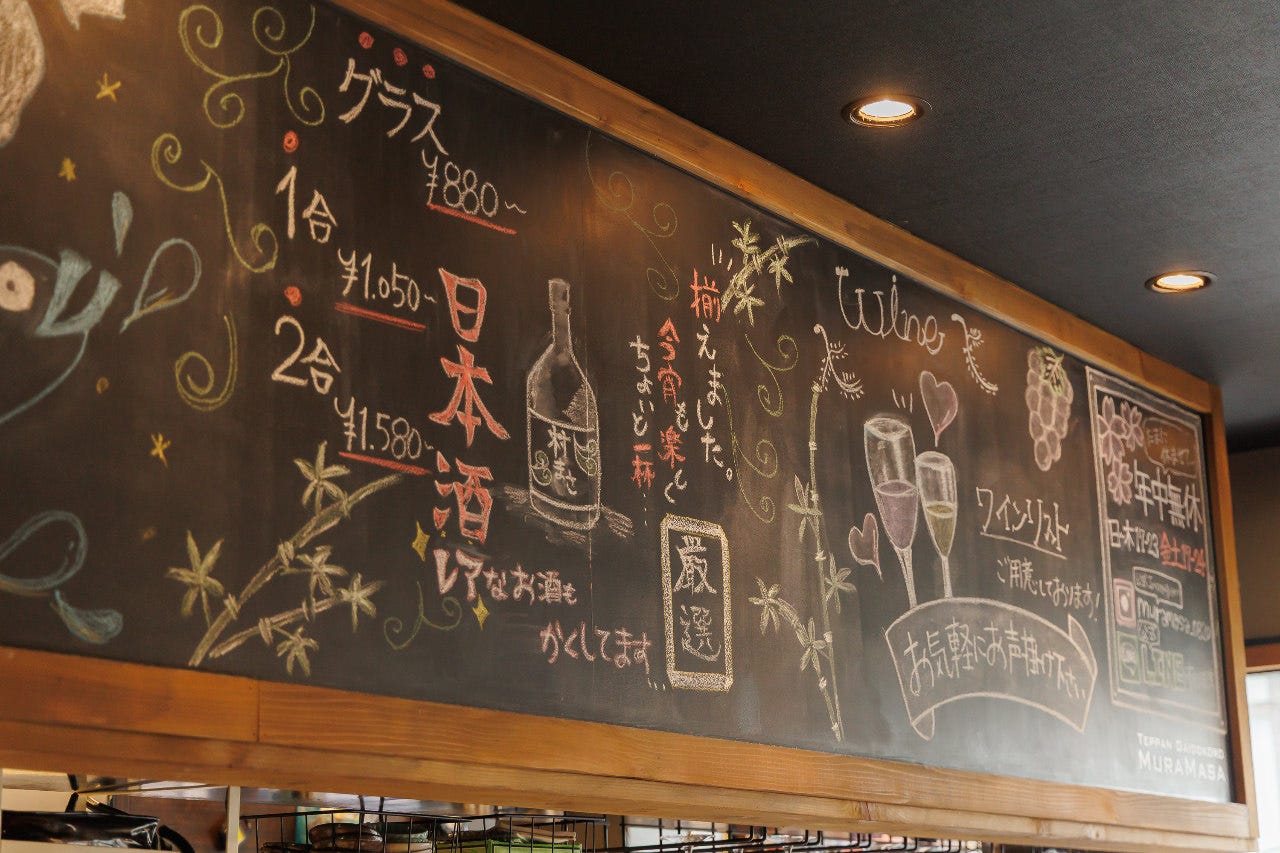 グラス
¥880~
1合
¥1.050~
2合
¥1.580~
日本酒
村まさ
レアなお酒も
かくしてます
揃えました。
今宵も楽しく
ちょいと一杯..
厳選
wine
ワインリスト
ご用意しております!
お気軽にお声掛け下さい
年中無休
日-木17-23 金土17-24
LINE
TEPPAN DAIDOKORO
MURAMASA